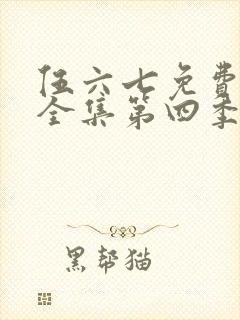 伍六七免费
全集第四季
黑帮猫